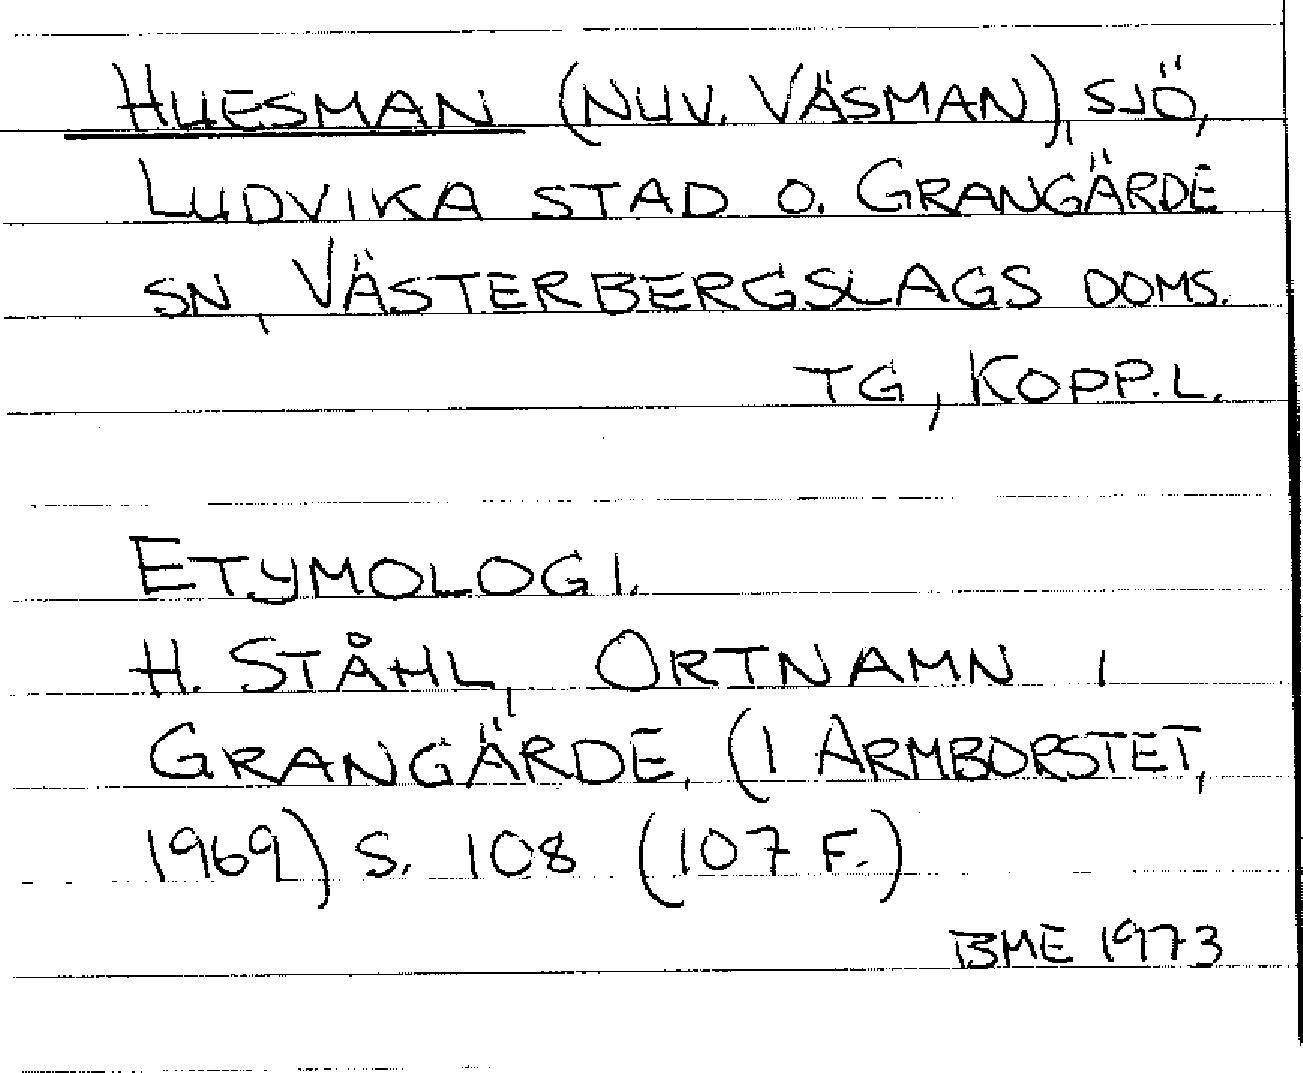 HUESMAN (NUV. VÄSMAN), SJÖ,
LUDVIKA STAD O. GRANGÄRDE
SN, VÄSTERBERGSLAGS DOMS.
TG, KOPP.L.
ETYMOLOGI.
H. STÅHL, ORTNAMN I
GRANGÄRDE. (I ARMBORSTET,
1969) S. 108 (107 F.)
BME 1973